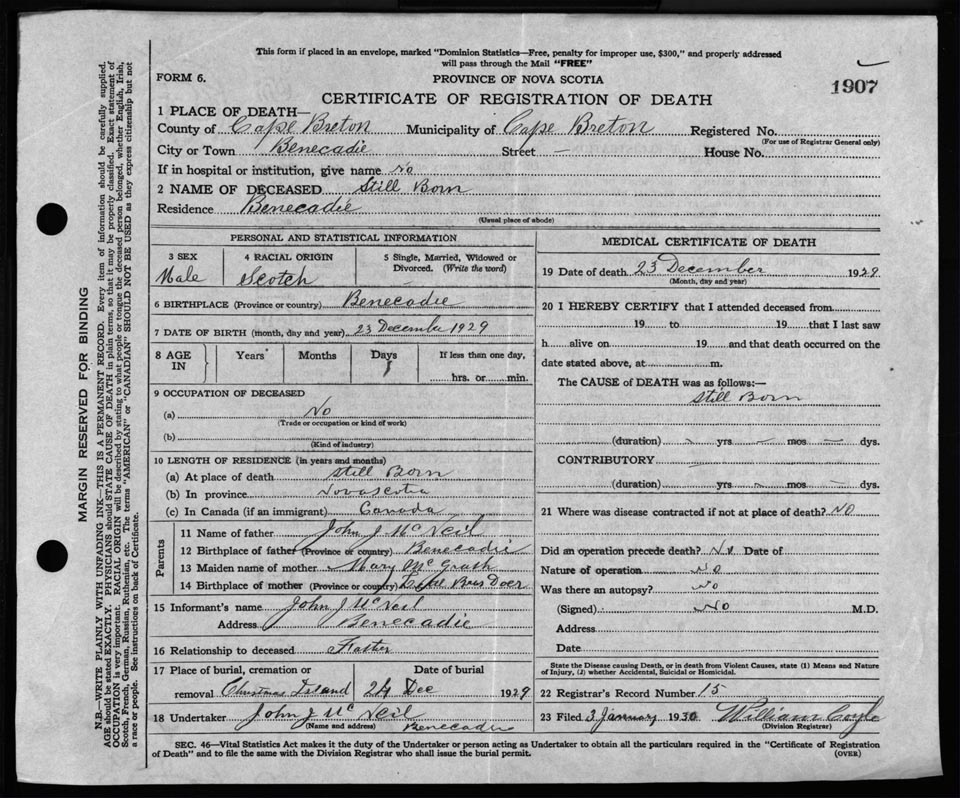 This form if placed in an envelope, marked "Dominion Statistics—Free, penalty for improper use, $300," and properly addressed
will pass through the Mail "FREE"
FORM 6.
PROVINCE OF NOVA SCOTIA
1907
CERTIFICATE OF REGISTRATION OF DEATH
1 PLACE OF DEATH—
County of Cape Breton Municipality of Cape Breton Registered No.
(For use of Registrar General only)
City or Town Benecadie Street — House No.
If in hospital or institution, give name No
2 NAME OF DECEASED Still Born
Residence Benecadie
(Usual place of abode)
PERSONAL AND STATISTICAL INFORMATION
3 SEX 4 RACIAL ORIGIN 5 Single, Married, Widowed or
Divorced. (Write the word)
Male Scotch
6 BIRTHPLACE (Province or country) Benecadie
7 DATE OF BIRTH (month, day and year) 23 December 1929
8 AGE IN Years Months Days If less than one day,
hrs. or min.
9 OCCUPATION OF DECEASED
(a) No
(Trade or occupation or kind of work)
(b)
(Kind of industry)
10 LENGTH OF RESIDENCE (in years and months)
(a) At place of death Still Born
(b) In province Novascotia
(c) In Canada (if an immigrant) Canada
Parents
11 Name of father John J McNeil
12 Birthplace of father (Province or country) Benecadie
13 Maiden name of mother Mary McGrath
14 Birthplace of mother (Province or country)
15 Informant's name John J McNeil
Address Benecadie
16 Relationship to deceased Father
17 Place of burial, cremation or Date of burial
removal Christmas Island 24 Dec 1929
18 Undertaker John J McNeil
(Name and address) Benecadie
MEDICAL CERTIFICATE OF DEATH
19 Date of death 23 December 1929
(Month, day and year)
20 I HEREBY CERTIFY that I attended deceased from
19 to 19 that I last saw
h alive on 19 and that death occurred on the
date stated above, at m.
The CAUSE of DEATH was as follows:—
Still Born
(duration) yrs mos dys.
CONTRIBUTORY —
(duration) yrs mos dys.
21 Where was disease contracted if not at place of death? NO
Did an operation precede death? No Date of
Nature of operation No
Was there an autopsy? No
(Signed) No M.D.
Address
Date
State the Disease causing Death, or in death from Violent Causes, state (1) Means and Nature
of Injury, (2) whether Accidental, Suicidal or Homicidal.
22 Registrar's Record Number 15
23 Filed 3 January 1930 William Coyle
(Division Registrar)
SEC. 46—Vital Statistics Act makes it the duty of the Undertaker or person acting as Undertaker to obtain all the particulars required in the "Certificate of Registration
of Death" and to file the same with the Division Registrar who shall issue the burial permit.
(OVER)
MARGIN RESERVED FOR BINDING
N.B.—WRITE PLAINLY WITH UNFADING INK—THIS IS A PERMANENT RECORD. Every item of information should be carefully supplied.
AGE should be stated EXACTLY. PHYSICIANS should STATE CAUSE OF DEATH in plain terms, so that it may be properly classified. Exact statement of
OCCUPATION is very important. RACIAL ORIGIN will be described by stating to what people or tongue the deceased person belonged, whether English, Irish,
Scotch, French, German, Russian, Ruthenian, etc. The terms "AMERICAN" or "CANADIAN" SHOULD NOT BE USED as they express citizenship but not
a race or people. See instructions on back of Certificate.